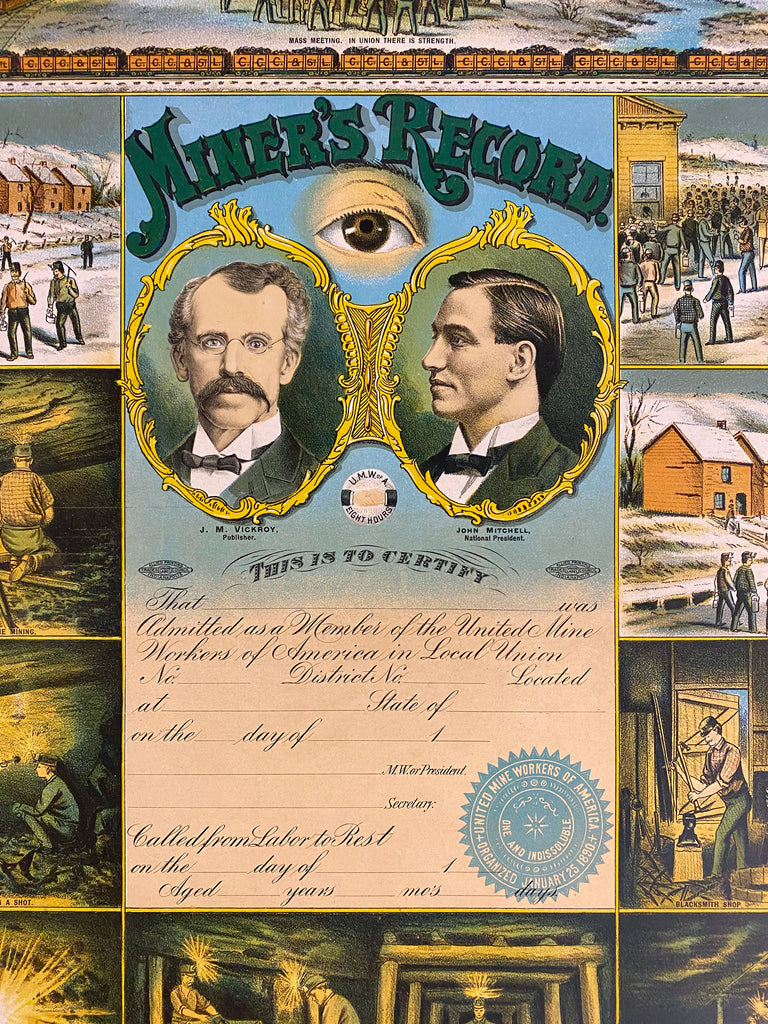 MASS MEETING. IN UNION THERE IS STRENGTH.
C.C.C. & St L. C.C.C. & St L. C.C.C. & St L. C.C.C. & St L. C.C.C. & St L.
MINER'S RECORD.
U.M.W. of A.
EIGHT HOURS
J. M. VICKROY,
Publisher.
JOHN MITCHELL,
National President.
THIS IS TO CERTIFY
That was
Admitted as a Member of the United Mine
Workers of America in Local Union
No. District No. Located
at State of
on the day of 1
M.W. or President.
Secretary.
Called from Labor to Rest
on the day of 1
Aged years mo's days
UNITED MINE WORKERS OF AMERICA
ONE AND INDISSOLUBLE
ORGANIZED JANUARY 25 1890
MINING.
A SHOT.
BLACKSMITH SHOP